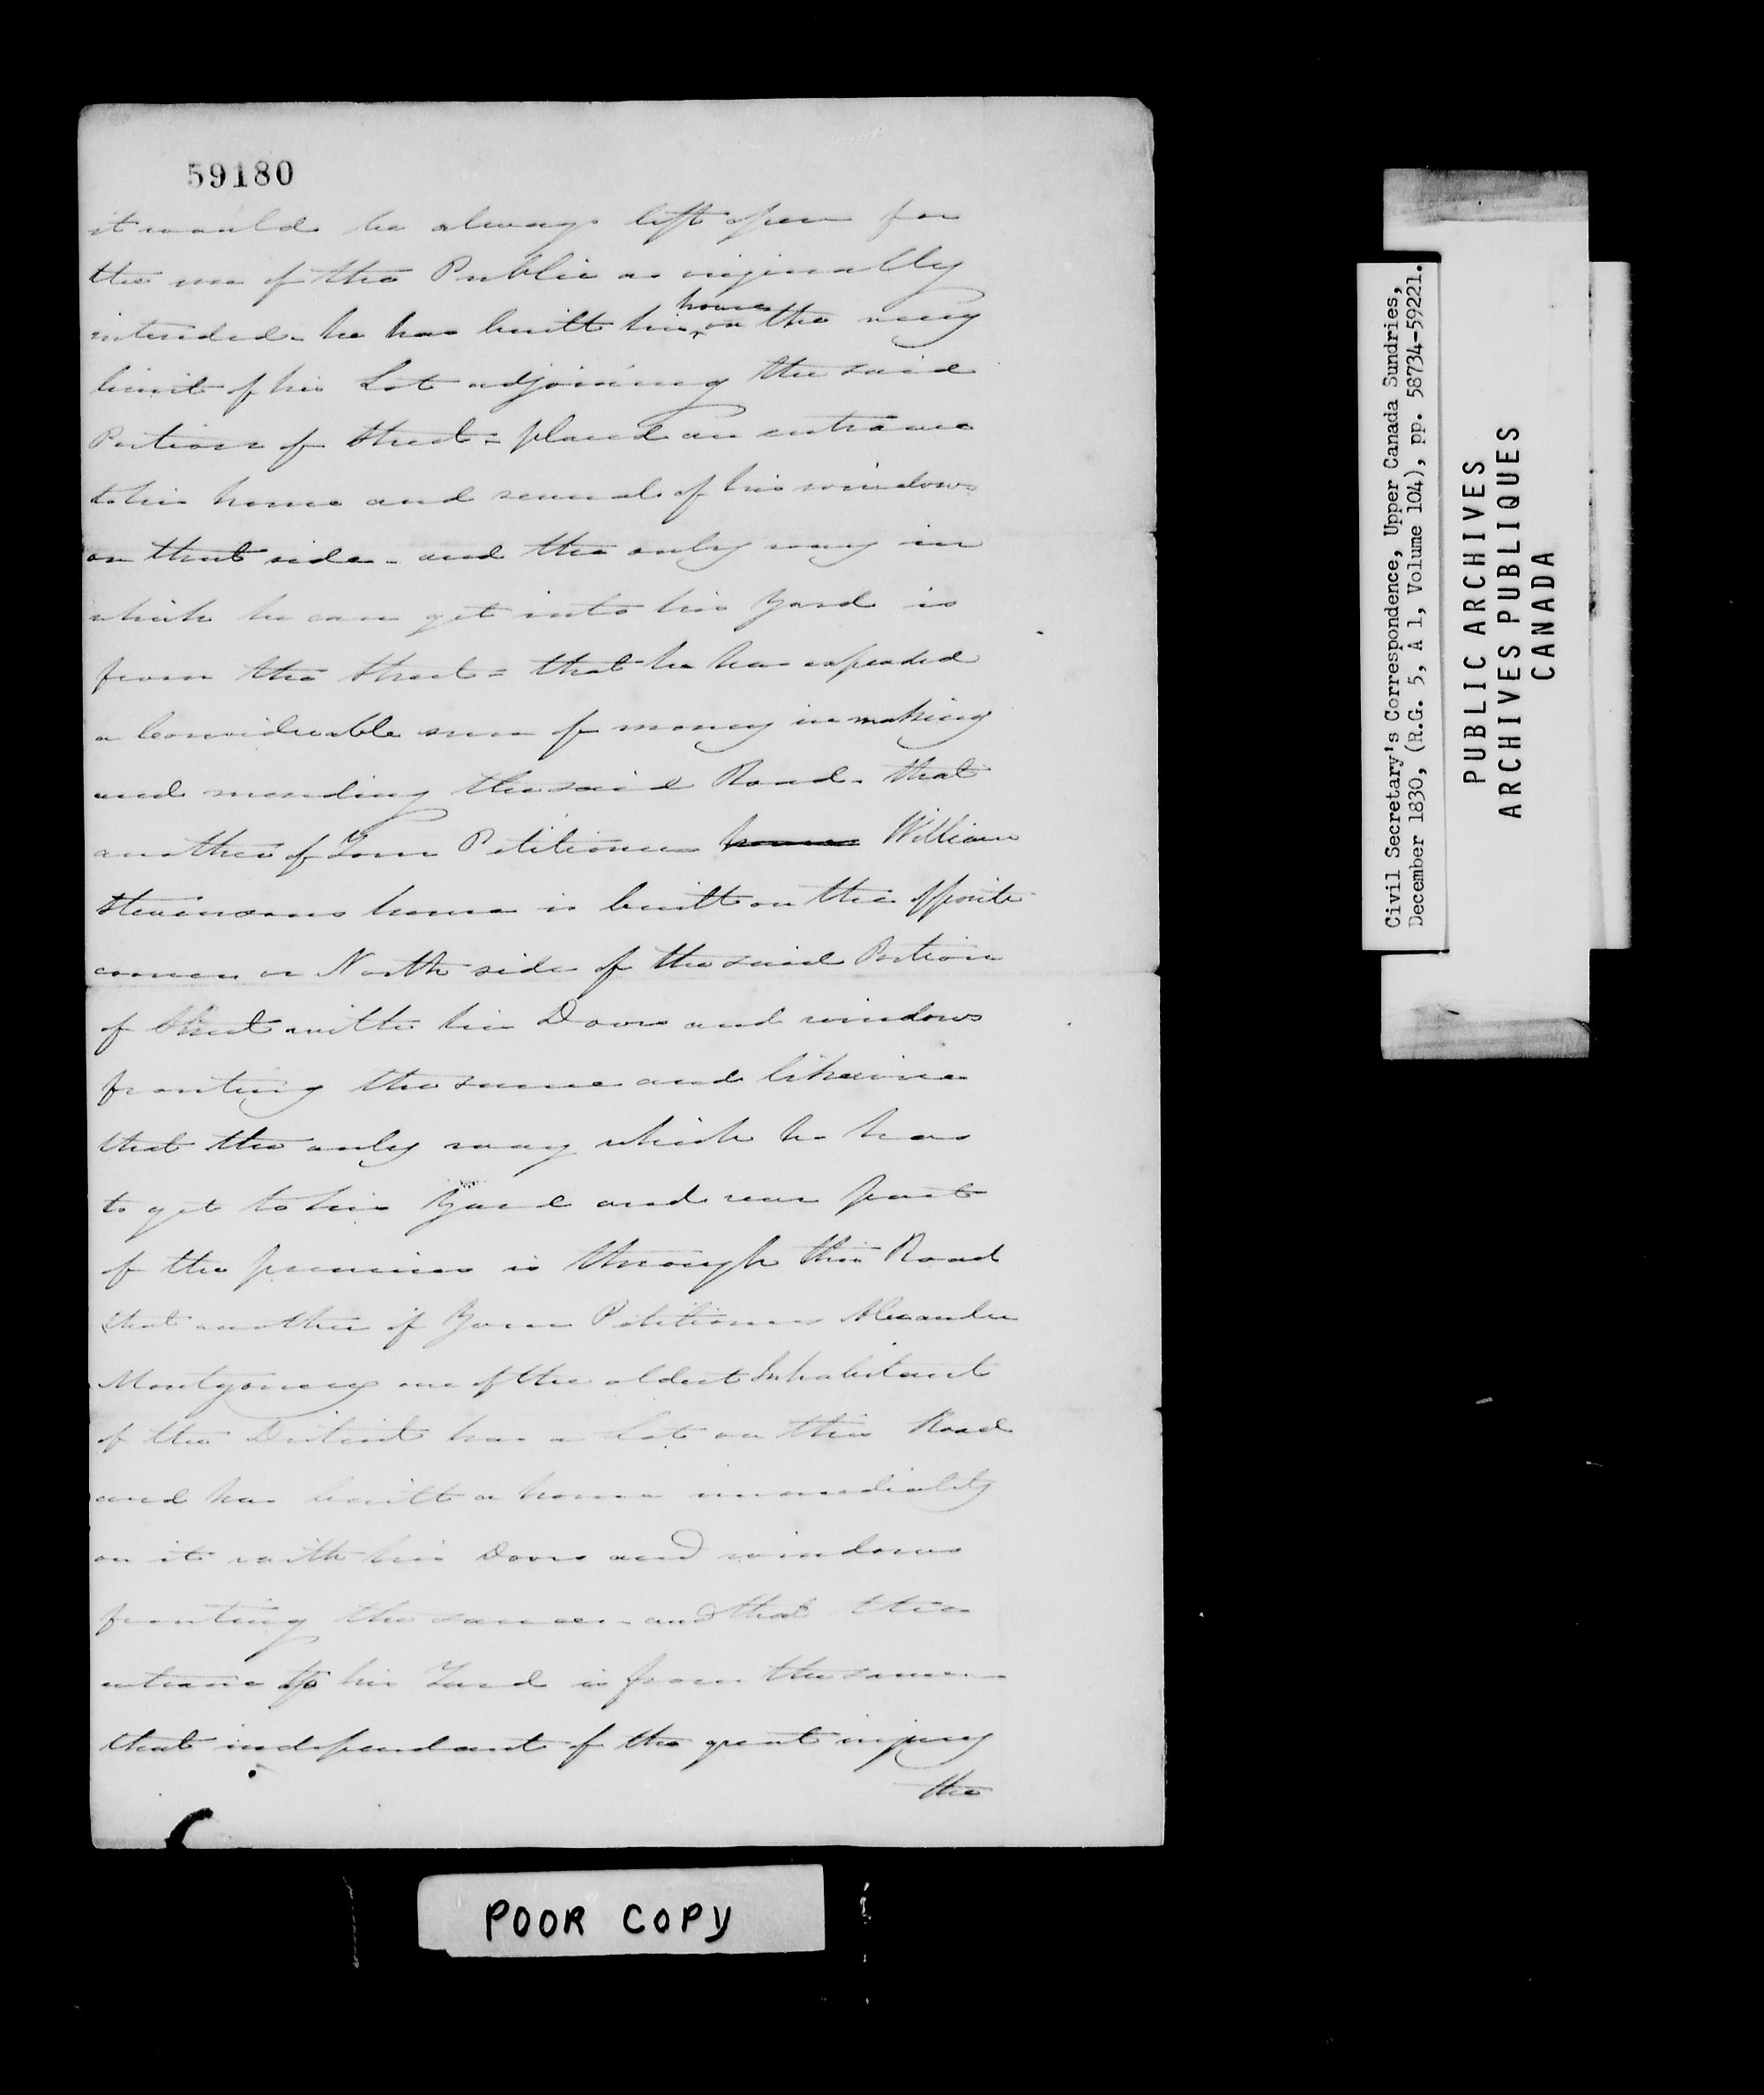 59180
it would be always left open for
the use of the Public as originally
intended - he has built his house on the very
limit of his Lot adjoining the said
Portion of Street = placed an entrance
to his house and several of his windows
on that side - and the only way in
which he can get into his Yard is
from the Street = that he has expended
a Considerable sum of money in making
and mending the said Road - that
another of Your Petitioners house William
Stevensons house is built on the opposite
corner or North side of the said Portion
of Street with his Doors and windows
fronting the same and likewise
that the only way which he has
to get to his Yard and rear part
of the premises is through this Road
that another of Your Petitioners Alexander
Montgomery one of the oldest Inhabitants
of the District has a Lot on this Road
and has built a house immediately
on it with his Doors and windows
fronting the same - and that the
entrance to his Yard is from the same -
that independant of the great injury
the
POOR COPY
Civil Secretary's Correspondence, Upper Canada Sundries,
December 1830, (R.G. 5, A 1, Volume 104), pp. 58734-59221.
PUBLIC ARCHIVES
ARCHIVES PUBLIQUES
CANADA